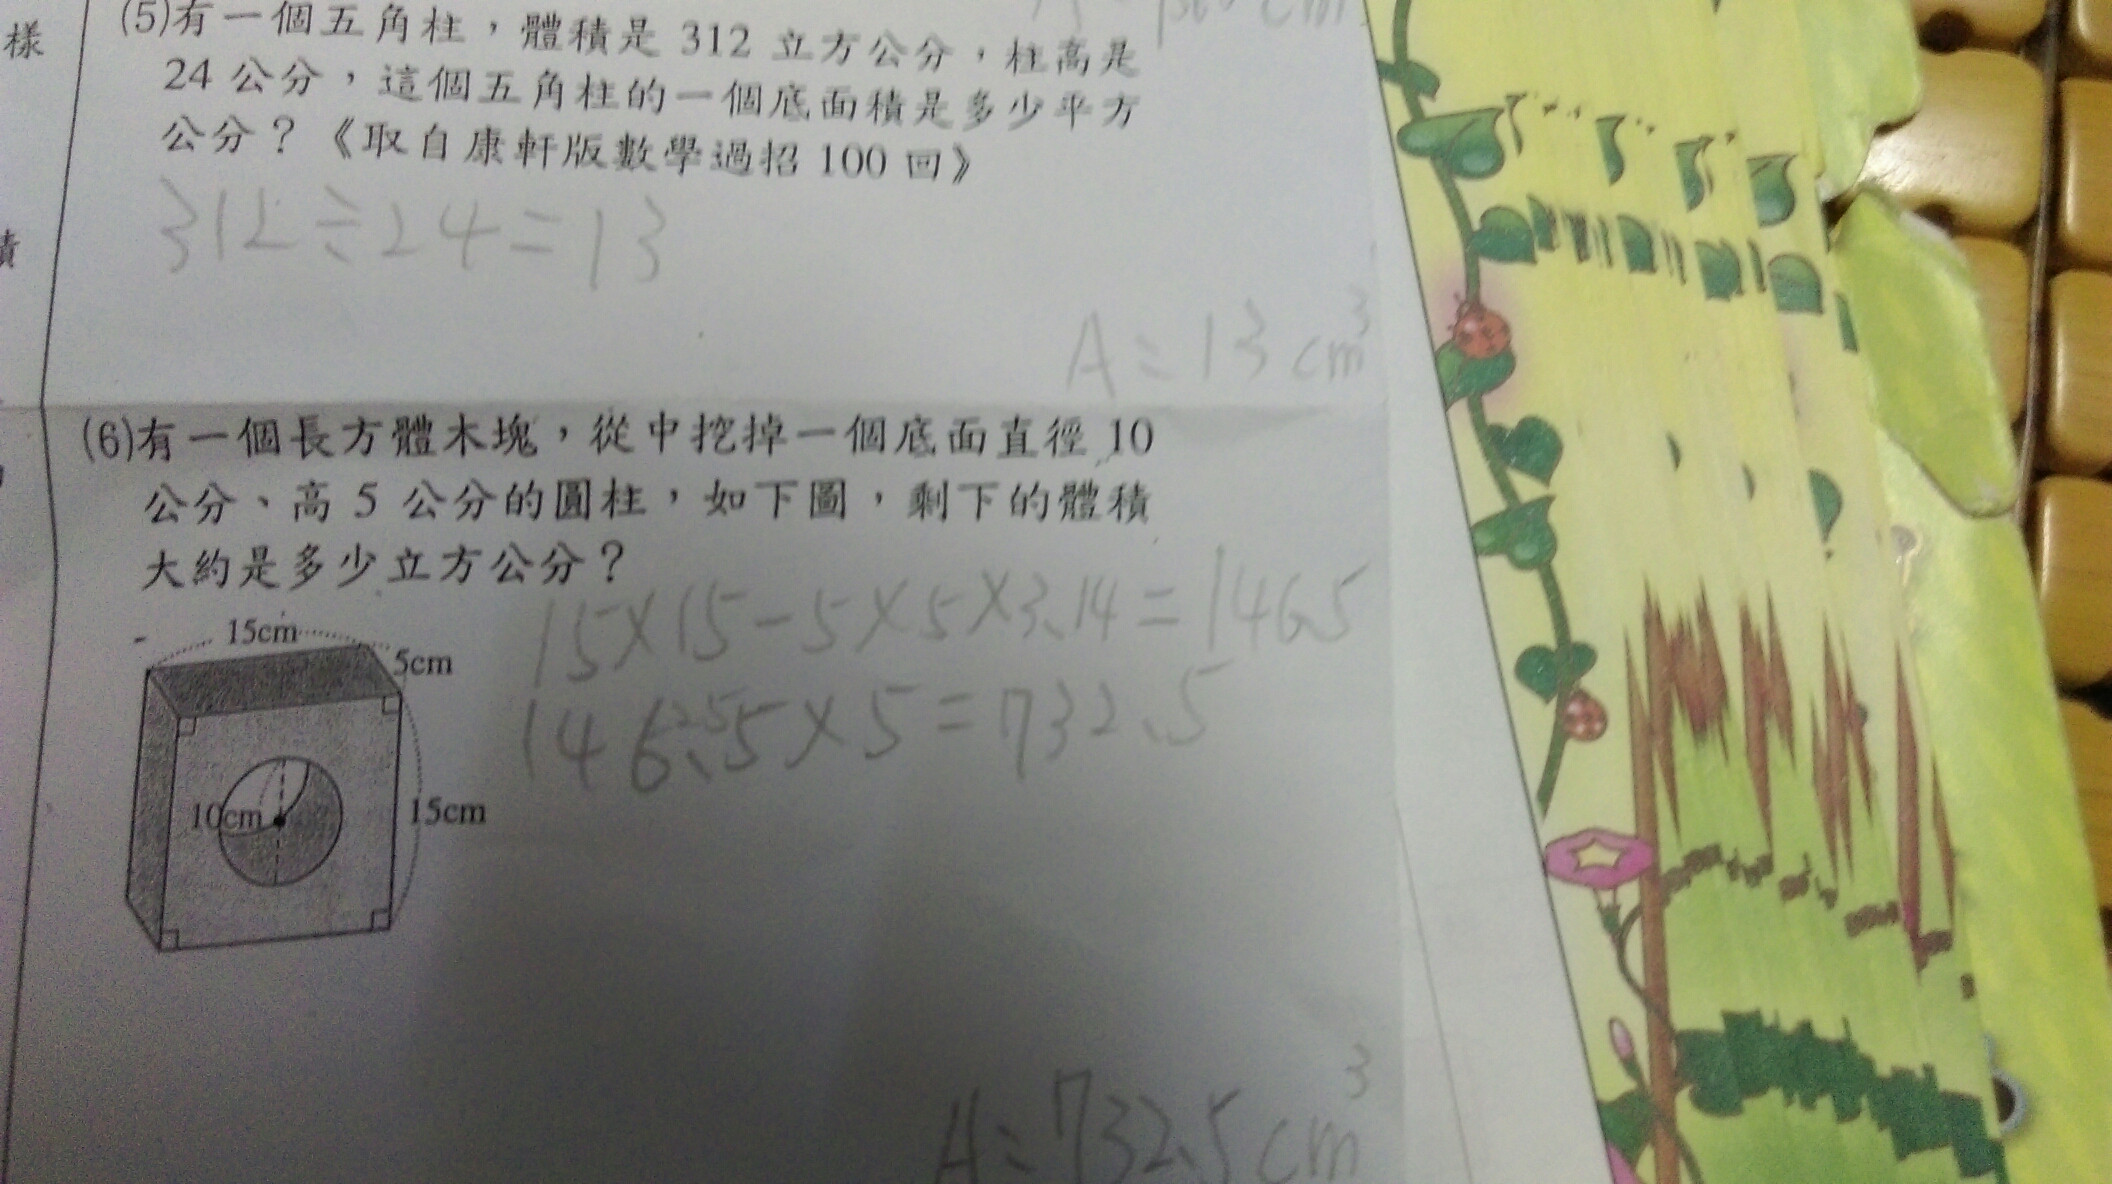 樣
積
(5)有一個五角柱，體積是 312 立方公分，柱高是
24 公分，這個五角柱的一個底面積是多少平方
公分？《取自康軒版數學過招 100 回》
312÷24=13
A=13cm³
(6)有一個長方體木塊，從中挖掉一個底面直徑 10
公分、高 5 公分的圓柱，如下圖，剩下的體積
大約是多少立方公分？
15×15-5×5×3.14=146.5
146.5×5=732.5
15cm
5cm
10cm
15cm
A=732.5cm³